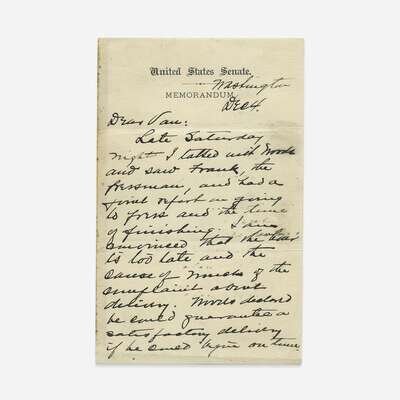 United States Senate.
Washington
MEMORANDUM.
Dec 4.
Dear Van:
Late Saturday
night I talked with Woods
and saw Frank, the
pressman, and had a
joint report on going
to press and the time
of finishing. I am
convinced that the hour
is too late and the
cause of much of the
complaint about
delivery. Woods declared
he could guarantee a
satisfactory delivery
if he could begin on time